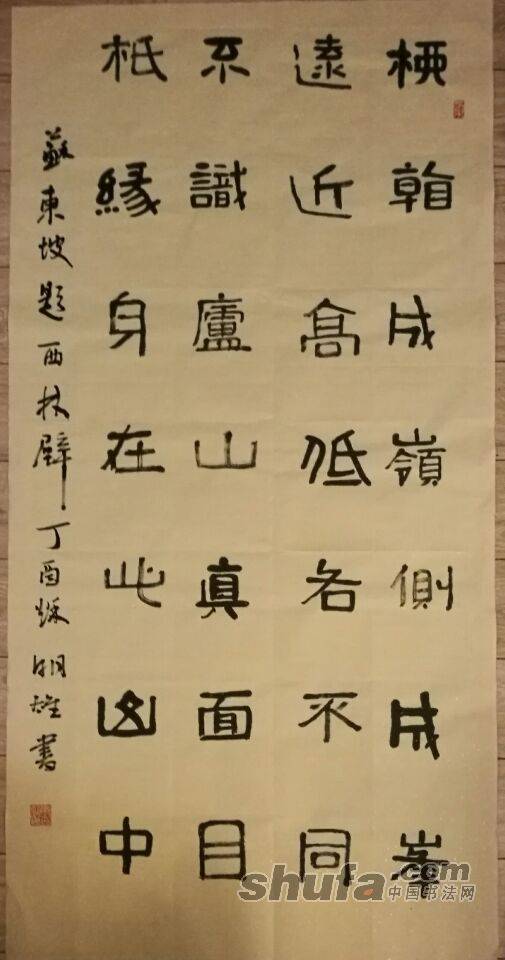 橫看成嶺側成峯
遠近高低各不同
不識廬山眞面目
秖緣身在此山中
蘇東坡題西林壁丁酉秌明雄書
shufa.com
中国书法网